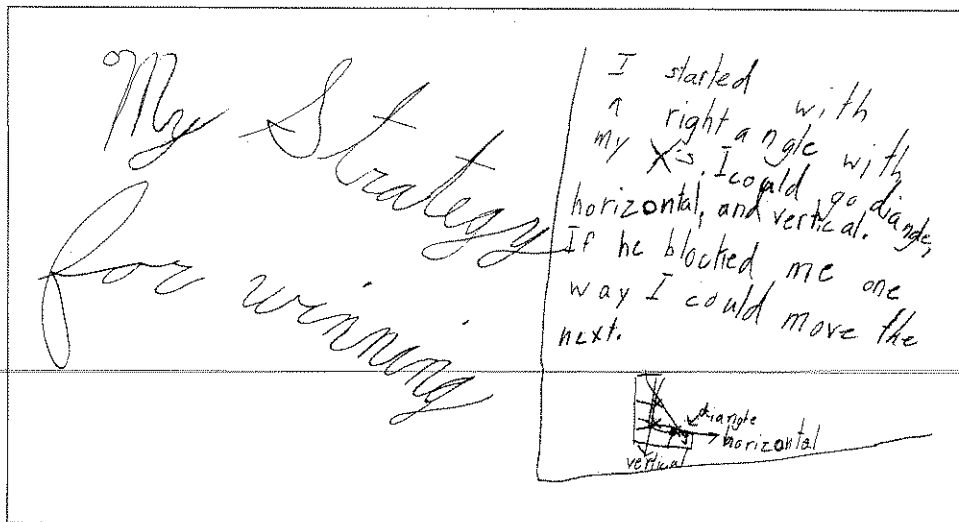 My Strategy
for winning
I started with
a right angle with
my X's. I could go diangle,
horizontal, and vertical.
If he blocked me one
way I could move the
next.
diangle
horizontal
vertical